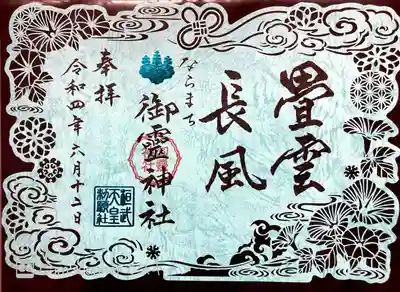 畳雲
長風
ならまち
御靈神社
奉拝
令和四年六月十二日
桓武
天皇
勅願社